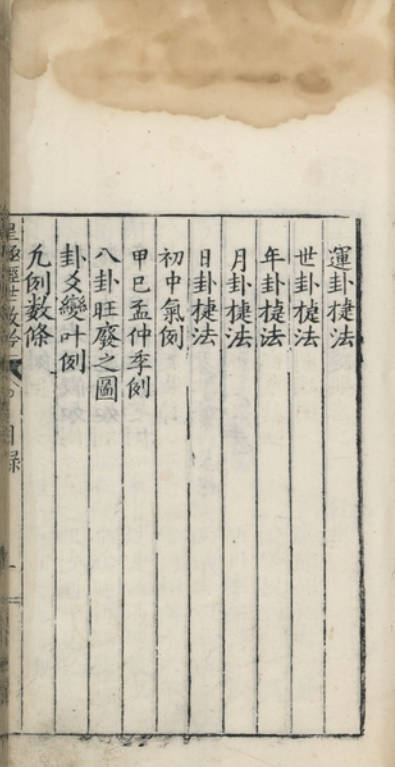 運卦㨗法
世卦㨗法
年卦㨗法
月卦㨗法
日卦㨗法
初中氣例
甲巳孟仲季例
八卦旺廢之圖
卦爻變叶例
凢例数條
皇極經世
目録